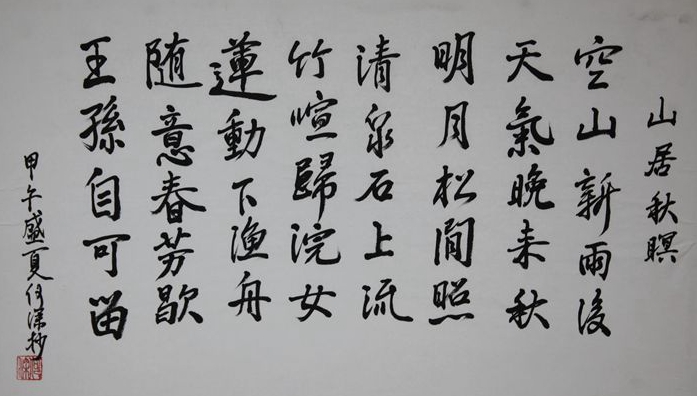 山居秋暝
空山新雨後
天氣晚来秋
明月松間照
清泉石上流
竹喧歸浣女
蓮動下漁舟
随意春芳歇
王孫自可留
甲午盛夏何澤抄